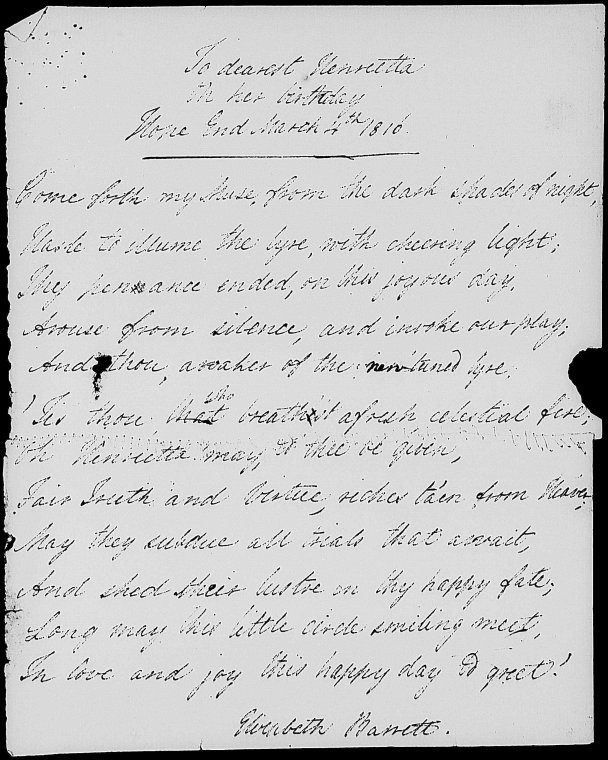 To dearest Henrietta
on her birthday
Hope End March 4th 1816.
Come forth my Muse, from the dark shades of night,
Haste to illume the lyre, with cheering light;
Thy pennance ended, on this joyous day,
Arouse from silence, and invoke our play;
And thou, awaker of the new tuned lyre,
'Tis thou that who breathest afresh, celestial fire;
Oh Henrietta may, to thee be given,
Fair Truth and Virtue, riches ta'en from Heaven,
May they subdue all trials that await,
And shed their lustre on thy happy fate;
Long may this little circle smiling meet,
In love and joy this happy day to greet!
Elizabeth Barrett.